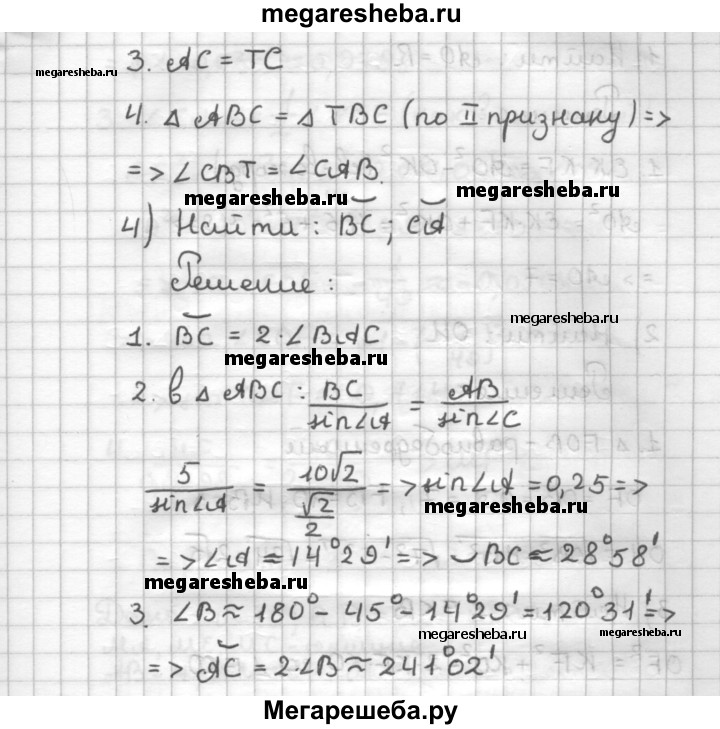 megaresheba.ru
3. AC = TC
megaresheba.ru
4. △ ABC = △ TBC (по II признаку) =>
=> ∠CBT = ∠CAB.
megaresheba.ru megaresheba.ru
4) Найти : ‿BC ; ‿CA
Решение :
megaresheba.ru
1. ‿BC = 2·∠BAC
megaresheba.ru
2. В △ ABC : BC/sin∠A = AB/sin∠C
5/sin∠A = 10√2/(√2/2) => sin∠A = 0,25 =>
megaresheba.ru
=> ∠A ≈ 14°29' => ‿BC ≈ 28°58'
megaresheba.ru
3. ∠B ≈ 180° - 45° - 14°29' = 120°31' =>
megaresheba.ru megaresheba.ru
=> ‿AC = 2·∠B ≈ 241°02'
Мегарешеба.ру